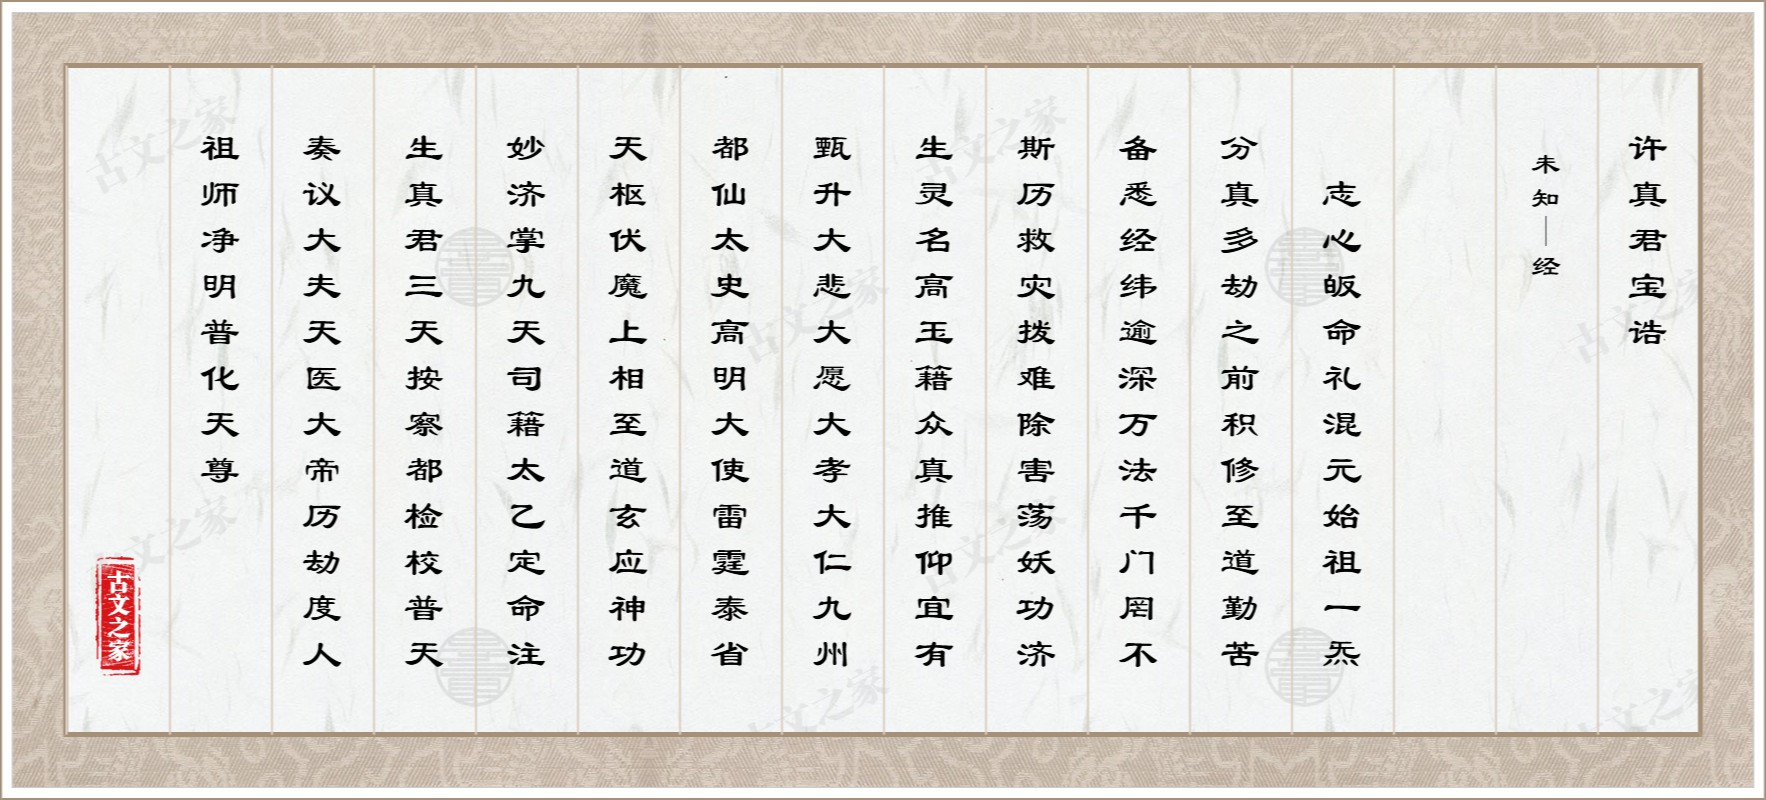 许真君宝诰
未知｜经
志心皈命礼混元始祖一炁
分真多劫之前积修至道勤苦
备悉经纬逾深万法千门罔不
斯历救灾拨难除害荡妖功济
生灵名高玉籍众真推仰宜有
甄升大悲大愿大孝大仁九州
都仙太史高明大使雷霆泰省
天枢伏魔上相至道玄应神功
妙济掌九天司籍太乙定命注
生真君三天按察都检校普天
奏议大夫天医大帝历劫度人
祖师净明普化天尊
古文之家